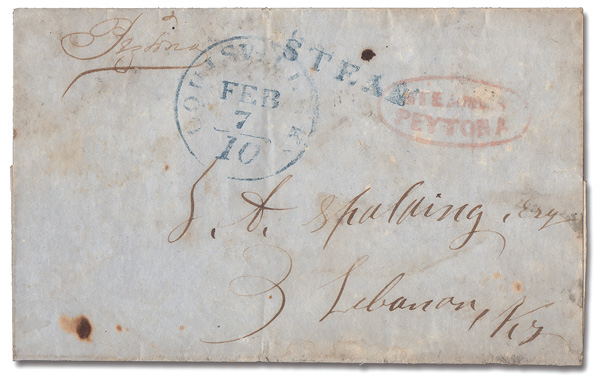 Peytona
LOUISVILLE KY
FEB
7
10
STEAM
STEAMER
PEYTONA
S. A. Spalding, Esq
Lebanon, Ky